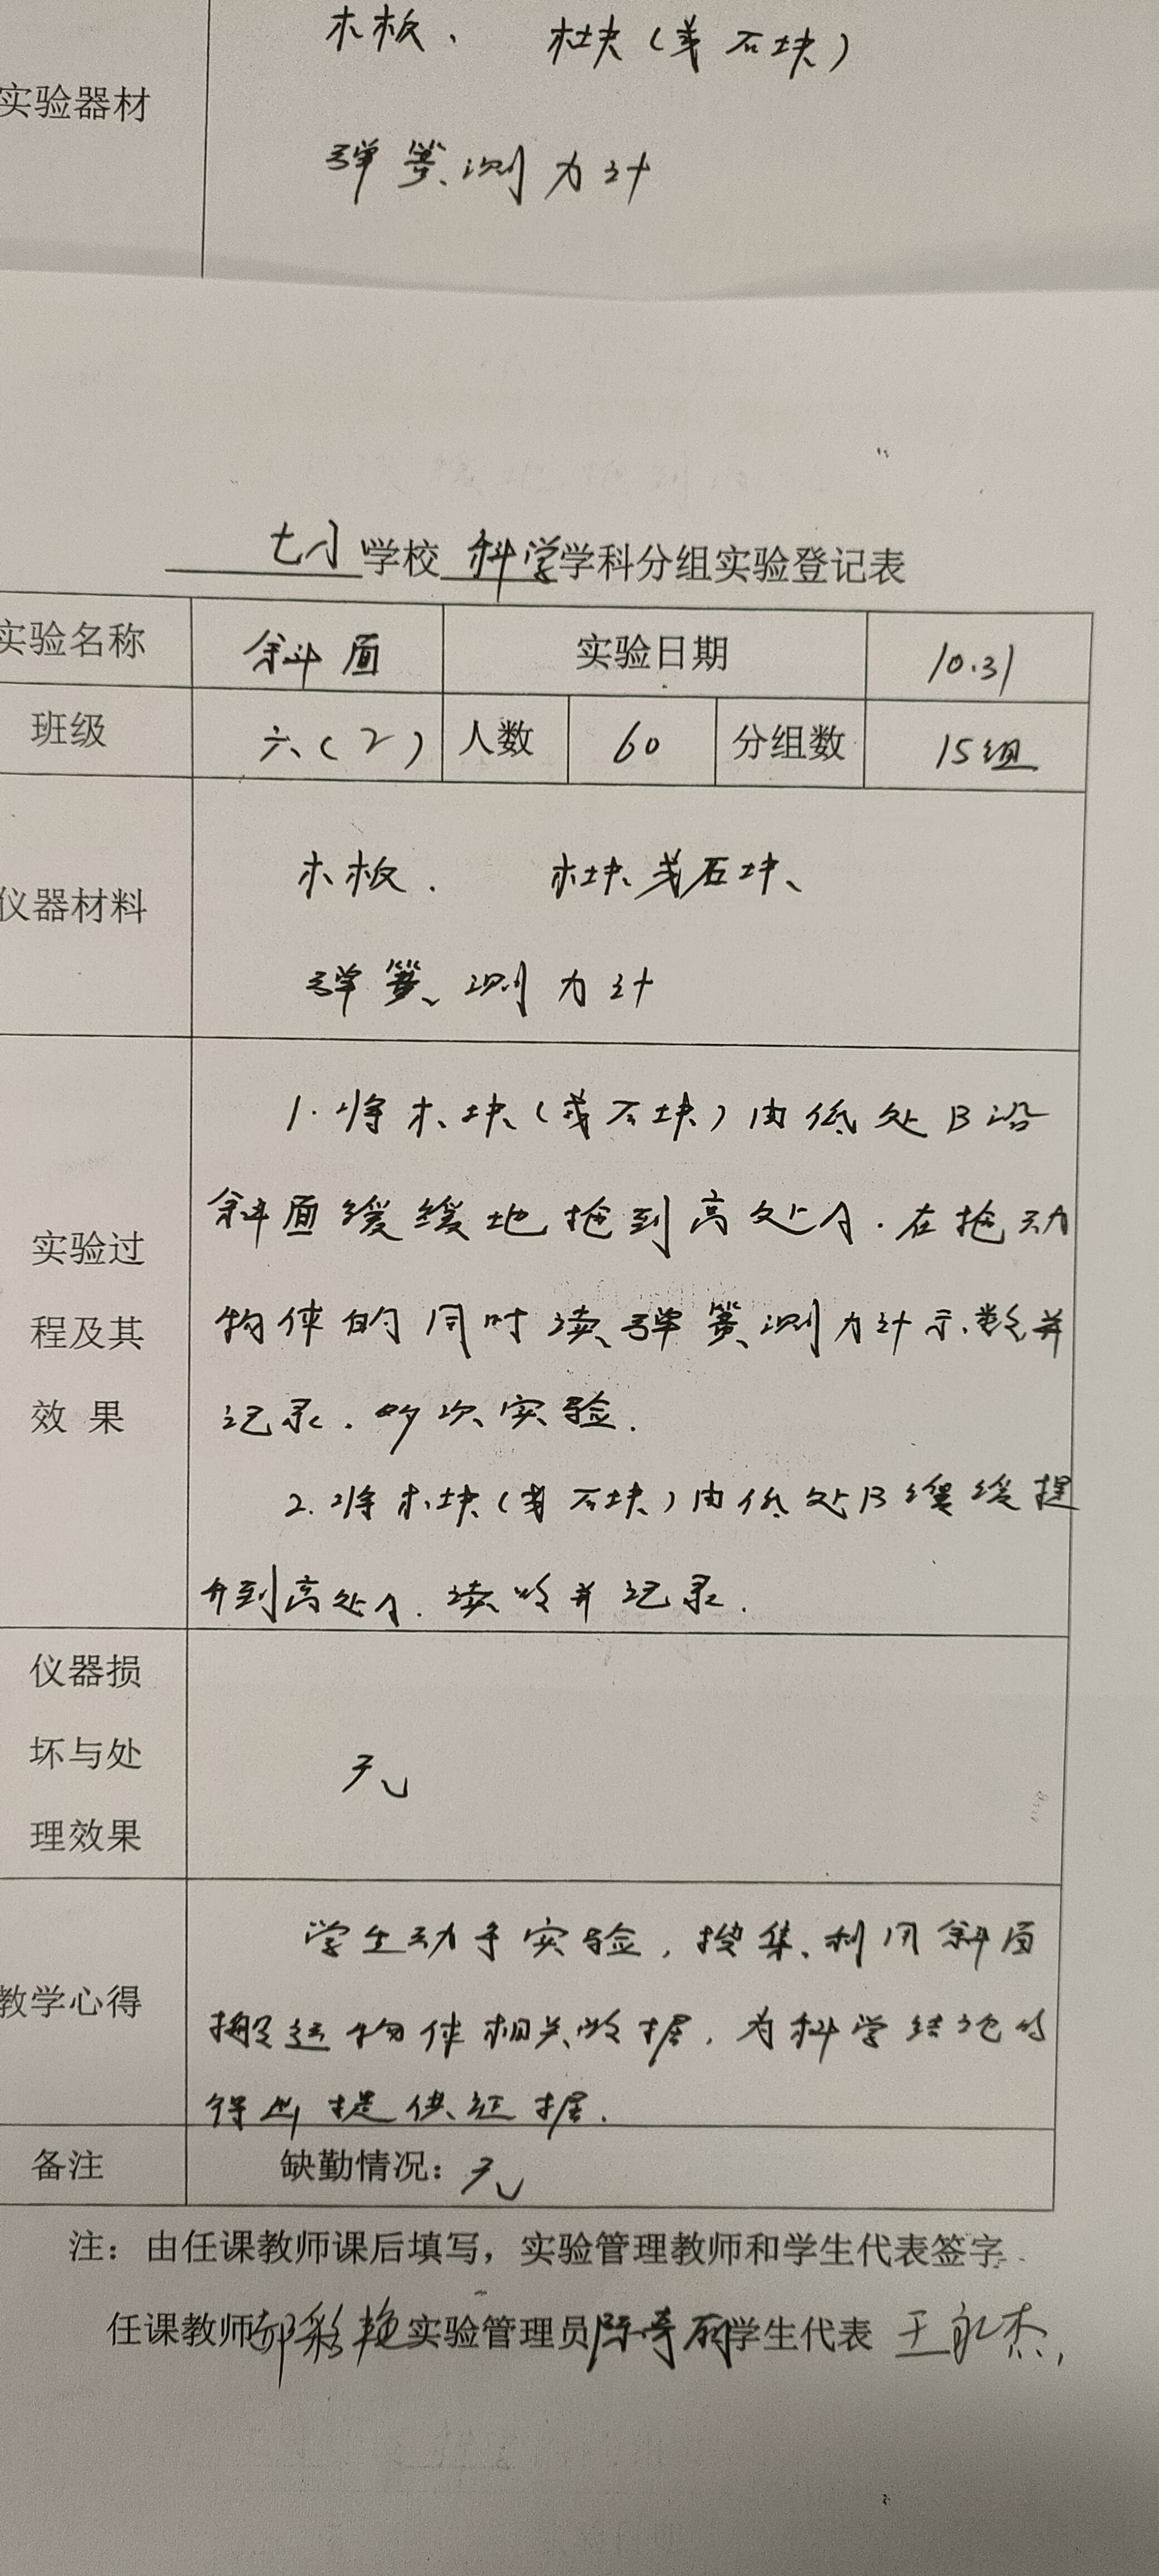 木板、 木块（或石块）
实验器材
弹簧测力计
七小学校科学学科分组实验登记表
实验名称 斜面 实验日期 10.31
班级 六（2） 人数 60 分组数 15组
木板、 木块或石块、
仪器材料
弹簧测力计
1.将木块（或石块）由低处B沿
斜面缓缓地拖到高处A.在拖动
实验过
物体的同时读弹簧测力计示数并
程及其
记录.多次实验.
效 果
2.将木块（或石块）由低处B缓缓提
升到高处A.读数并记录.
仪器损
坏与处
无
理效果
学生动手实验，搜集利用斜面
教学心得
搬运物体相关数据，为科学结论的
得出提供证据.
备注 缺勤情况：无
注：由任课教师课后填写，实验管理教师和学生代表签字
任课教师 彩艳 实验管理员 陈 丽 学生代表 王永杰